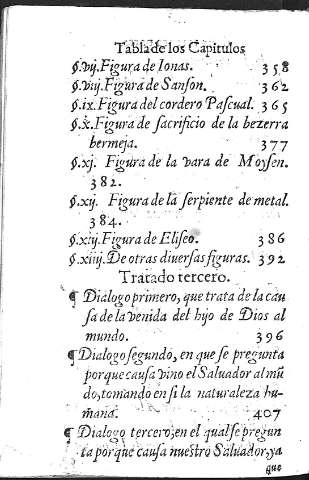 Tabla de los Capitulos
§.vij. Figura de Ionas. 358
§.viij. Figura de Sanson. 362
§.ix. Figura del cordero Pascual. 365
§.x. Figura de sacrificio de la bezerra
bermeja. 377
§.xj. Figura de la vara de Moysen.
382.
§.xij. Figura de la serpiente de metal.
384.
§.xiij. Figura de Eliseo. 386
§.xiiij. De otras diuersas figuras. 392
Tratado tercero.
¶ Dialogo primero, que trata de la cau
sa de la venida del hijo de Dios al
mundo. 396
¶ Dialogo segundo, en que se pregunta
porque causa vino el Saluador al mũ
do, tomando en si la naturaleza hu-
mana. 407
¶ Dialogo tercero, en el qual se pregun
ta porque causa nuestro Saluador, ya
que